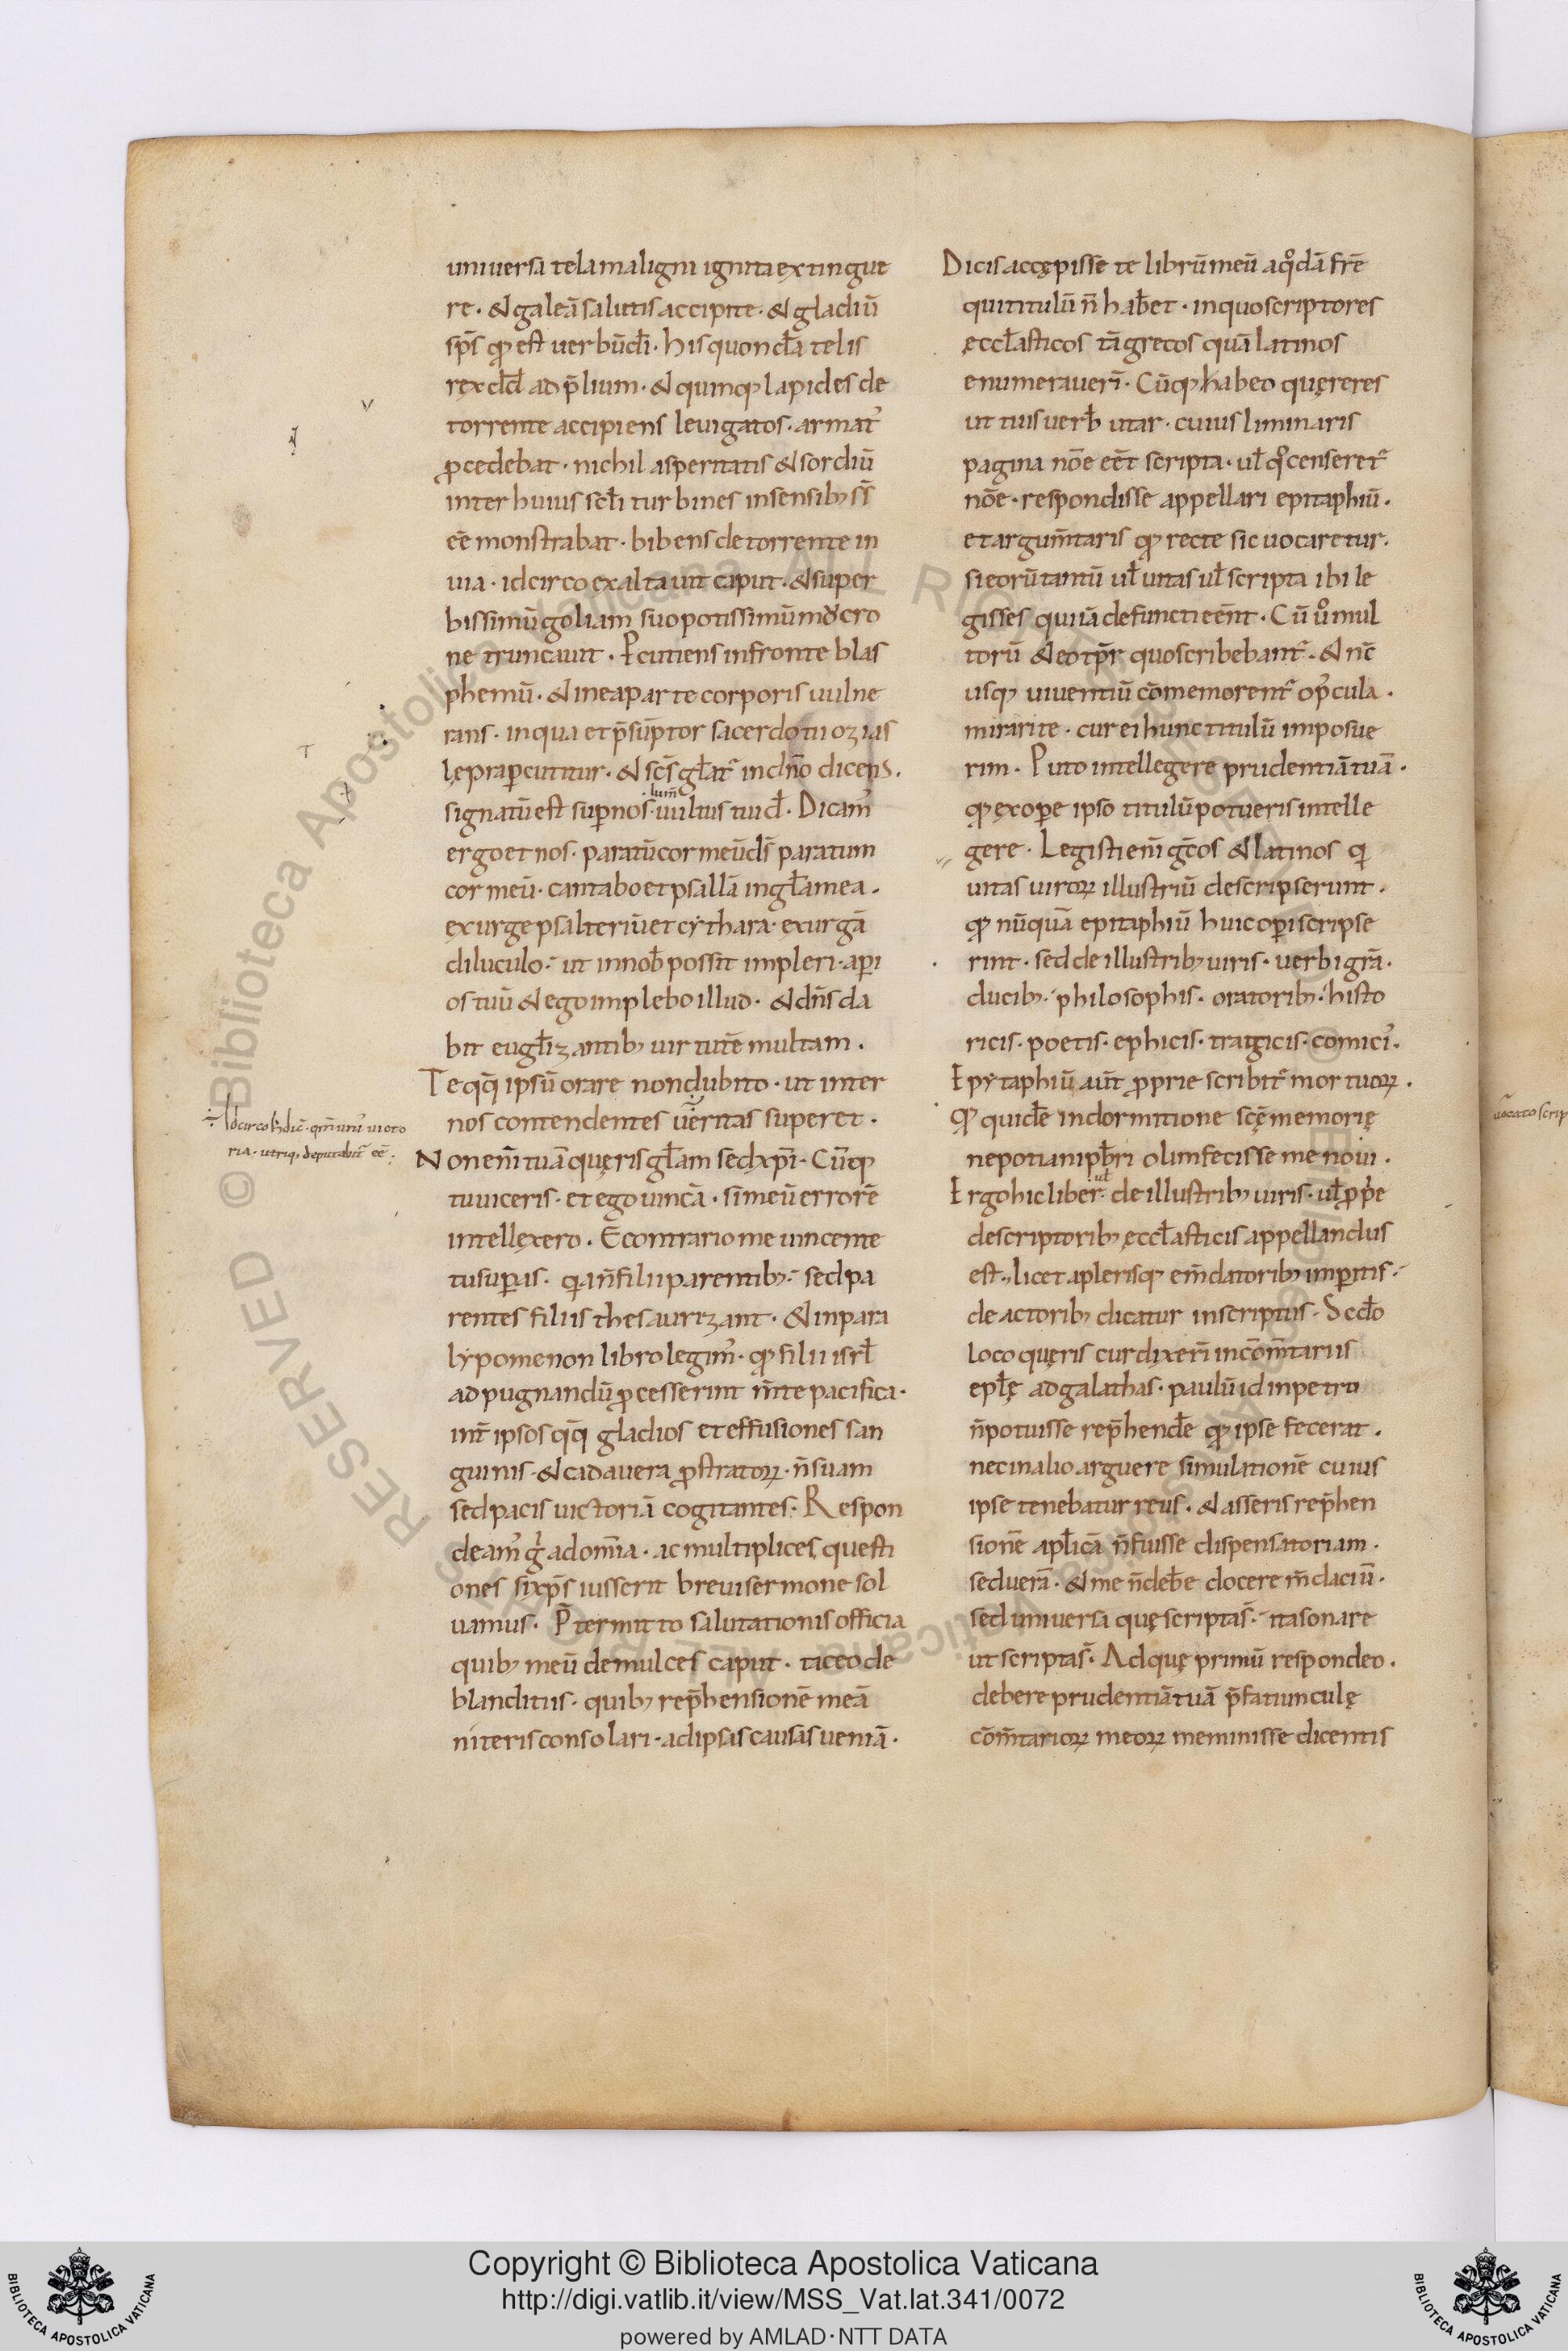 uniuersa tela maligni ignita extingue
re· & galeā salutis accipite· & gladiū
sp̄s qđ est uerbū dī· his quondā telis
rex dd̄ ad p̄lium· & quinq; lapides de
torrente accipiens leuigatos· armat᾽
ꝓcedebat· nichil asperitatis & sordiū
inter huius scłi turbines in sensib; s̄s
eē monstrabat· bibens de torrente in
uia· idcirco exaltauit caput· & super
bissimū goliam suo potissimū mucro
ne truncauit· ꝑcutiens in fronte blas
phemū· & in ea parte corporis uulne
rans· in qua et p̄sūptor sacerdotii ozias
lępra ꝑcutitur· & sc̄s głat᾽ in dn̄o dicens·
signatū est suꝑ nos· lum̄ uultus tui d̄· Dicam᾽
ergo et nos· paratū cor meū d̄s paratum
cor meū· cantabo et psallā in gła mea·
exurge psalteriū et cythara· exurgā
diluculo· ut in nob̄ possit impleri· aꝑi
os tuū & ego implebo illud· & dn̄s da
bit eugłizantib; uirtutē multam·
Te qq̄ ipsū orare non dubito· ut inter
nos contendentes ueritas superet·
Non eni᷄ tuā quęris głam sed xp̄i· Cūq;
tu uiceris· et ego uincā· si meū errorē
intellexero· E contrario me uincente
tu suꝑas· qa n̄ filii parentib;· sed pa
rentes filiis thesaurizant· & in para
lypomenon libro legim᾽· qđ filii isrł
ad pugnandū ꝓcesserint m̄te pacifica·
int̄ ipsos qq̄ gladios et effusiones san
guinis· & cadauera ꝓstratoꝝ· n̄ suam
sed pacis uictoriā cogitantes· Respon
deam᾽ g̊ ad om̄ia· ac multiplices questi
ones si xp̄s iusserit breui sermone sol
uamus· P̄termitto salutationis officia
quib; meū demulces caput· taceo de
blanditiis· quib; rep̄hensionē meā
niteris consolari· ad ipsas causas ueniā·
Idcirco h dic̄· qm̄ un᾽ uicto
ria· utriq; deputabit᾽ eē·
Dicis accępisse te librū meū a qđā fr̄e
qui titulū n̄ habet· in quo scriptores
ęccłasticos tā grecos quā latinos
enumeraueri᷄· Cūq; ab eo quęreres
ut tuis uerb̄ utar· cur liminaris
pagina nōe eēt scripta· uł qͦ censeret᾽
nōe· respondisse appellari epitaphiū·
et argum̄taris qđ recte sic uocaretur·
si eorū tantū uł uitas uł scripta ibi le
gisses qui iā defuncti eēnt· Cū uͦ mul
torū & eo tp̄r quo scribebant᾽· & nc̄
usq; uiuentiū cōmemorent᾽ op̄cula·
mirari te· cur ei hunc titulū imposue
rim· Puto intellegere prudentiā tuā·
qđ ex oꝑe ipso titulū potueris intelle
gere· Legisti eni᷄ gc̄os & latinos qi
uitas uiroꝝ illustriū descripserunt·
qđ nūquā epitaphiū huic oꝑi scripse
rint· sed de illustrib; uiris· uerbi grā·
ducib;· philosophis· oratorib;· histo
ricis· poetis· ephicis· tragicis· comici᾽·
Epytaphiū aūt ꝓprie scribit᾽ mortuoꝝ·
Qđ quidē in dormitione scę̄ memorię
nepotiani pb̄ri olim fecisse me noui·
Ergo hic liber· uł de illustrib; uiris· uł ꝓpe
de scriptorib; ęccłasticis appellandus
est· licet a plerisq; em̄datorib; imꝑitis·
de actorib; dicatur inscriptus· Scdo
loco quęris cur dixeri᷄ in cōm̄tariis
epłę ad galathas· paulū id in petro
n̄ potuisse rep̄hendē qđ ipse fecerat·
nec in alio arguere simulationē cuius
ipse tenebatur reus· & asseris rep̄hen
sionē apłicā n̄ fuisse dispensatoriam·
sed uerā· & me n̄ debē docere m̄daciū·
sed uniuersa quę scripta s̄· ita sonare
ut scripta s̄· Ad quę primū respondeo·
debere prudentiā tuā p̄fatiunculę
cōm̄tarioꝝ meoꝝ meminisse dicentis
Copyright © Biblioteca Apostolica Vaticana
http://digi.vatlib.it/view/MSS_Vat.lat.341/0072
powered by AMLAD·NTT DATA
BIBLIOTECA APOSTOLICA VATICANA
BIBLIOTECA APOSTOLICA VATICANA